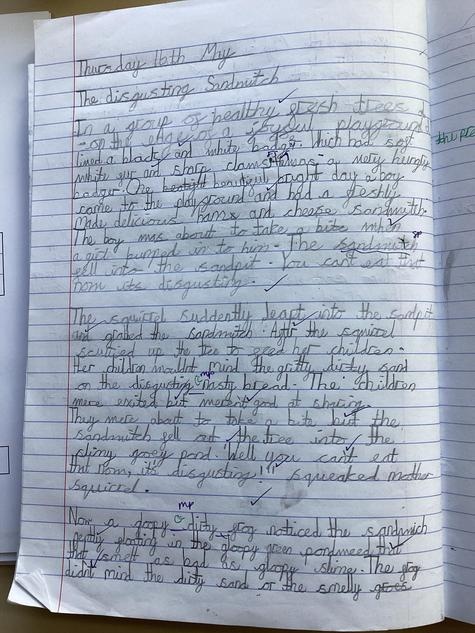 Thursday 16th May
The disgusting Sandwitch
In a group of healthy fresh trees
on the edge of a joyful playground
lived a black and white badger. Which had soft
white fur and sharp claws. It was a very hungry
badger. One beautiful bright day a boy
came to the playground and had a freshly
made delicious ham and cheese sandwitch.
The boy was about to take a bite when
a girl bumped in to him. The sandwitch
sp
fell into the sandpit. You can't eat that
now its disgusting.
The squirrel suddenly leapt into the sandpit
and grabed the sandwitch. After the squirrel
scurried up the tree to feed her children.
Her children wouldn't mind the gritty dirty sand
mp
or the disgusting nasty bread. The children
were exited but weren't good at sharing
They were about to take a bite but the
sandwitch fell out the tree into the
slimy gooey pond. "Well you can't eat
that now, it's disgusting!" squeaked mother
squirrel.
mp
Now a gloopy dirty frog noticed the sandwich
gently floating in the gloopy green pondweed that
that smelt as bad as gloopy slime. The frog
didn't mind the dirty sand or the smelly
the pre